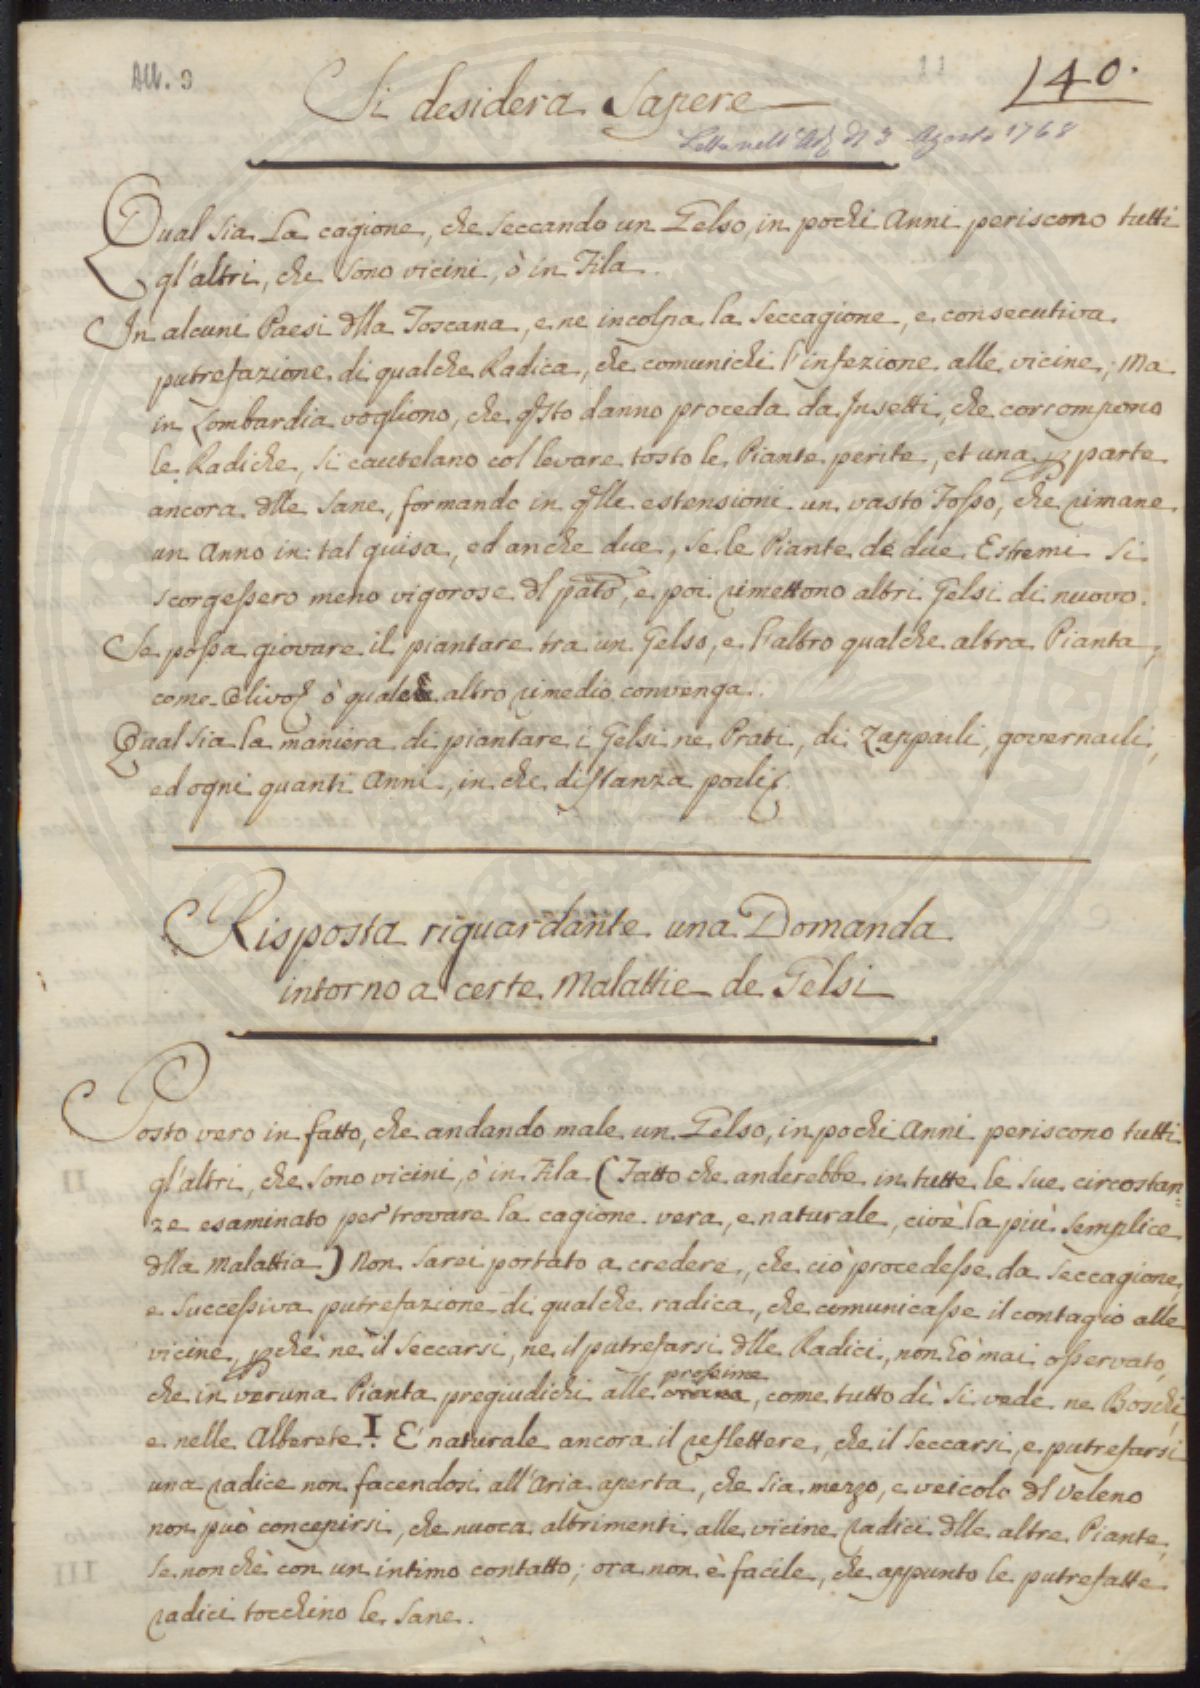 All. 9
140.
Si desidera Sapere
Letta nell' Ad: di 3 Agosto 1768
Qual sia la cagione, che seccando un Gelso, in pochi Anni periscono tutti
gl'altri, che sono vicini, ò in Fila.
In alcuni Paesi dlla Toscana, e ne incolpa la seccagione, e consecutiva
putrefazione di qualche Radica, che comunichi l'infezione alle vicine; Ma
in Lombardia vogliono, che qsto danno proceda da Insetti, che corrompono
le Radiche, si cautelano col levare tosto le Piante perite, et una parte
ancora dlle sane, formando in qlle estensioni un vasto Fosso, che rimane
un Anno in tal guisa, ed anche due, se le Piante de due Estremi si
scorgessero meno vigorose dl pato, e poi rimettono altri Gelsi di nuovo.
Se possa giovare il piantare tra un Gelso, e l'altro qualche altra Pianta,
come Olivo, ò quale altro rimedio convenga.
Qual sia la maniera di piantare i Gelsi ne Prati, di Zapparli, governarli,
ed ogni quanti Anni, in che distanza porli.
Risposta riguardante una Domanda
intorno a certe Malattie de Gelsi
Posto vero in fatto, che andando male un Gelso, in pochi Anni periscono tutti
gl'altri, che sono vicini, ò in Fila (Fatto che anderebbe in tutte le sue circostan=
ze esaminato per trovare la cagione vera, e naturale, cioè la più semplice
dlla Malattia) Non sarei portato a credere, che ciò procedesse da seccagione,
e successiva putrefazione di qualche radica, che comunicasse il contagio alle
vicine, pchè nè il seccarsi, ne il putrefarsi dlle Radici, non hò mai osservato,
che in veruna Pianta pregiudichi alle prossime, come tutto dì si vede ne Boschi,
e nelle Alberete I. E' naturale ancora il reflettere, che il seccarsi, e putrefarsi
una radice non facendosi all'Aria aperta, che sia mezzo, e veicolo dl Veleno
non può concepirsi, che nuoca altrimenti alle vicine radici dlle altre Piante,
se non chè con un intimo contatto; ora non è facile, che appunto le putrefatte
radici tocchino le sane.